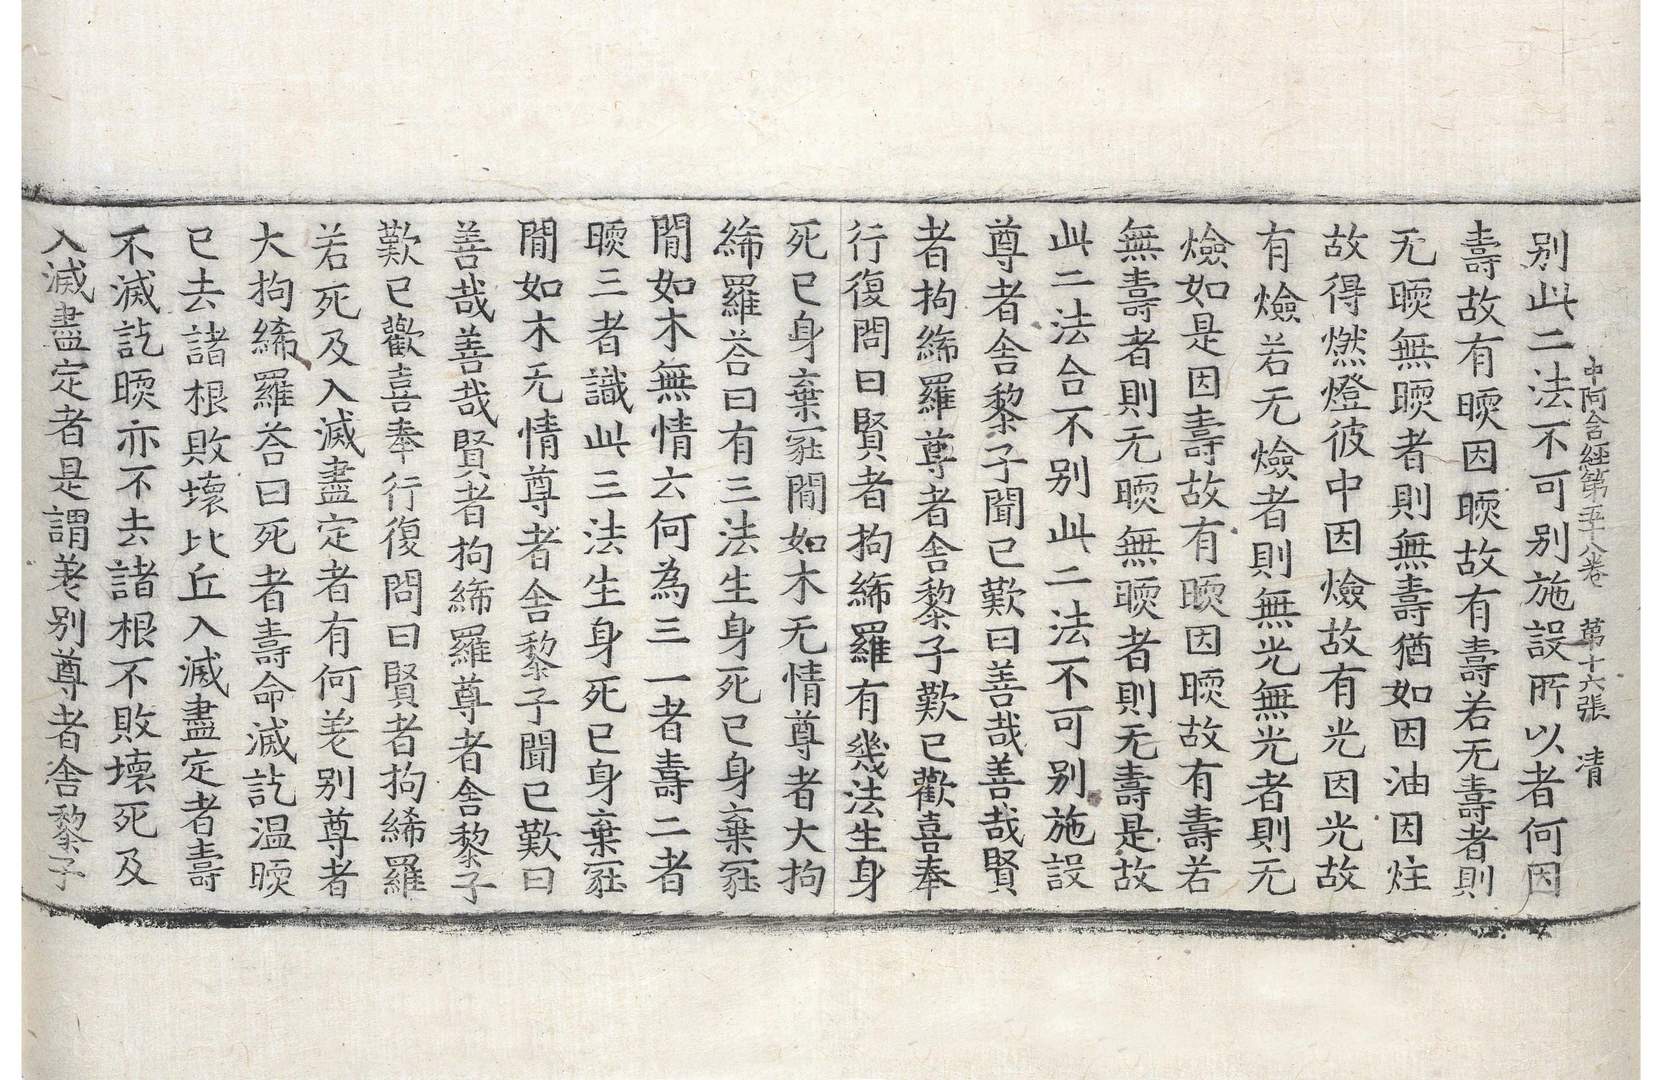 中阿含經第五十八卷 第十六張 清
别此二法不可别施設所以者何因
壽故有暝因暝故有壽若无壽者則
无暝無暝者則無壽猶如因油因炷
故得燃燈彼中因燄故有光因光故
有燄若无燄者則無光無光者則无
燄如是因壽故有暝因暝故有壽若
無壽者則无暝無暝者則无壽是故
此二法合不别此二法不可别施設
尊者舍黎子聞已歎曰善哉善哉賢
者拘絺羅尊者舍黎子歎已歡喜奉
行復問曰賢者拘絺羅有幾法生身
死已身棄冢閒如木无情尊者大拘
絺羅荅曰有三法生身死已身棄冢
閒如木無情云何為三一者壽二者
暝三者識此三法生身死已身棄冢
閒如木无情尊者舍黎子聞已歎曰
善哉善哉賢者拘絺羅尊者舍黎子
歎已歡喜奉行復問曰賢者拘絺羅
若死及入滅盡定者有何差别尊者
大拘絺羅荅曰死者壽命滅訖温暝
已去諸根敗壞比丘入滅盡定者壽
不滅訖暝亦不去諸根不敗壞死及
入滅盡定者是謂差别尊者舍黎子